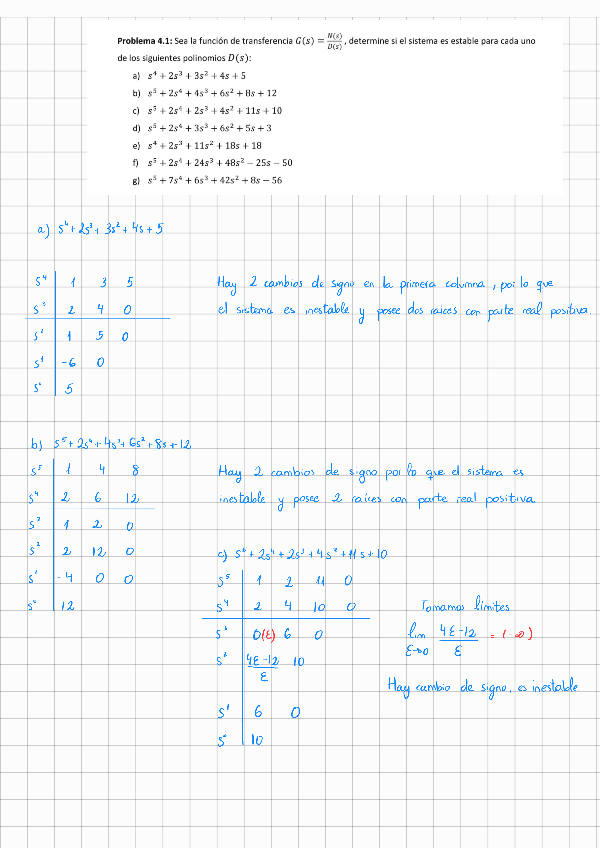 Problema 4.1: Sea la función de transferencia G(s) = N(s)/D(s), determine si el sistema es estable para cada uno
de los siguientes polinomios D(s):
a) s⁴ + 2s³ + 3s² + 4s + 5
b) s⁵ + 2s⁴ + 4s³ + 6s² + 8s + 12
c) s⁵ + 2s⁴ + 2s³ + 4s² + 11s + 10
d) s⁵ + 2s⁴ + 3s³ + 6s² + 5s + 3
e) s⁴ + 2s³ + 11s² + 18s + 18
f) s⁵ + 2s⁴ + 24s³ + 48s² − 25s − 50
g) s⁵ + 7s⁴ + 6s³ + 42s² + 8s − 56
a) s⁴ + 2s³ + 3s² + 4s + 5
s⁴ 1 3 5
s³ 2 4 0
s² 1 5 0
s¹ -6 0
s⁰ 5
Hay 2 cambios de signo en la primera columna, por lo que
el sistema es inestable y posee dos raices con parte real positiva.
b) s⁵ + 2s⁴ + 4s³ + 6s² + 8s + 12
s⁵ 1 4 8
s⁴ 2 6 12
s³ 1 2 0
s² 2 12 0
s¹ -4 0 0
s⁰ 12
Hay 2 cambios de signo por lo que el sistema es
inestable y posee 2 raíces con parte real positiva
c) s⁵ + 2s⁴ + 2s³ + 4s² + 11s + 10
s⁵ 1 2 11 0
s⁴ 2 4 10 0
s³ 0(ε) 6 0
s² (4ε-12)/ε 10
s¹ 6 0
s⁰ 10
Tomamos límites
lim ε→0 (4ε-12)/ε = (-∞)
Hay cambio de signo, es inestable